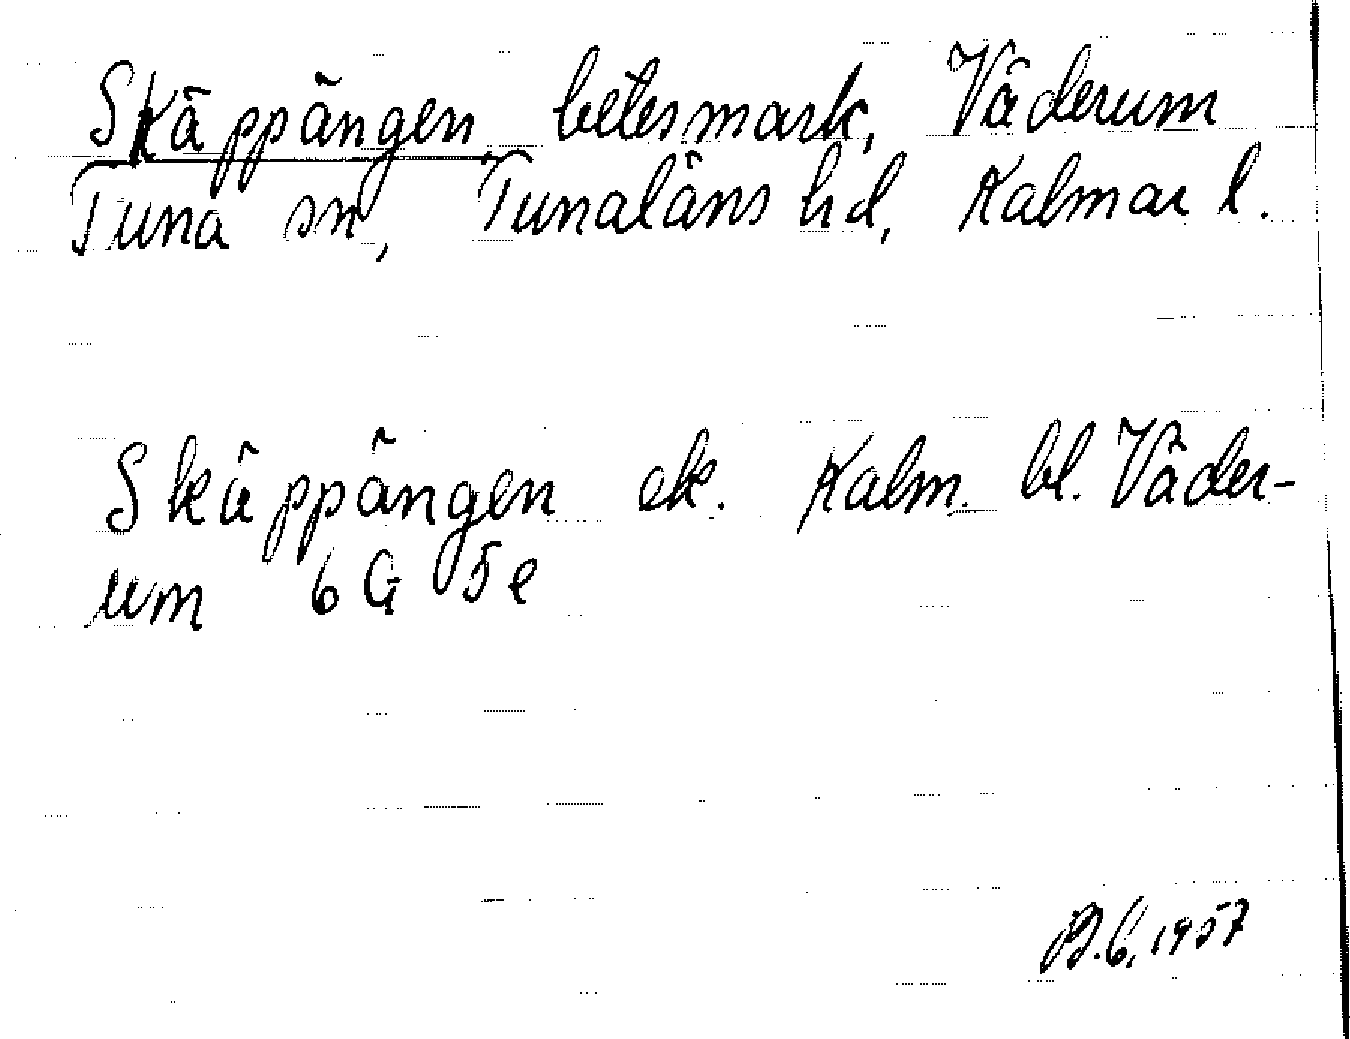 Skäppängen, betesmark, Väderum
Tuna sn, Tunaläns hd, Kalmar l.
Skäppängen ek. Kalm. bl. Väder-
um 6 G 5 e
1957